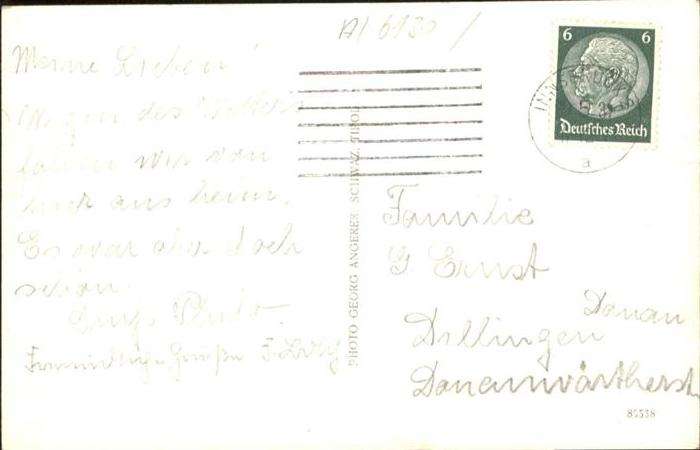 A/6130/
Meine Lieben!
Wegen des Wetters
fahren wir von
hier aus heim.
Es war aber doch
schön.
Gruß
Grüße
PHOTO GEORG ANGERER SCHWAZ, TIROL
6 6
Deutsches Reich
a
Familie
G. Ernst
Dillingen Donau
85558